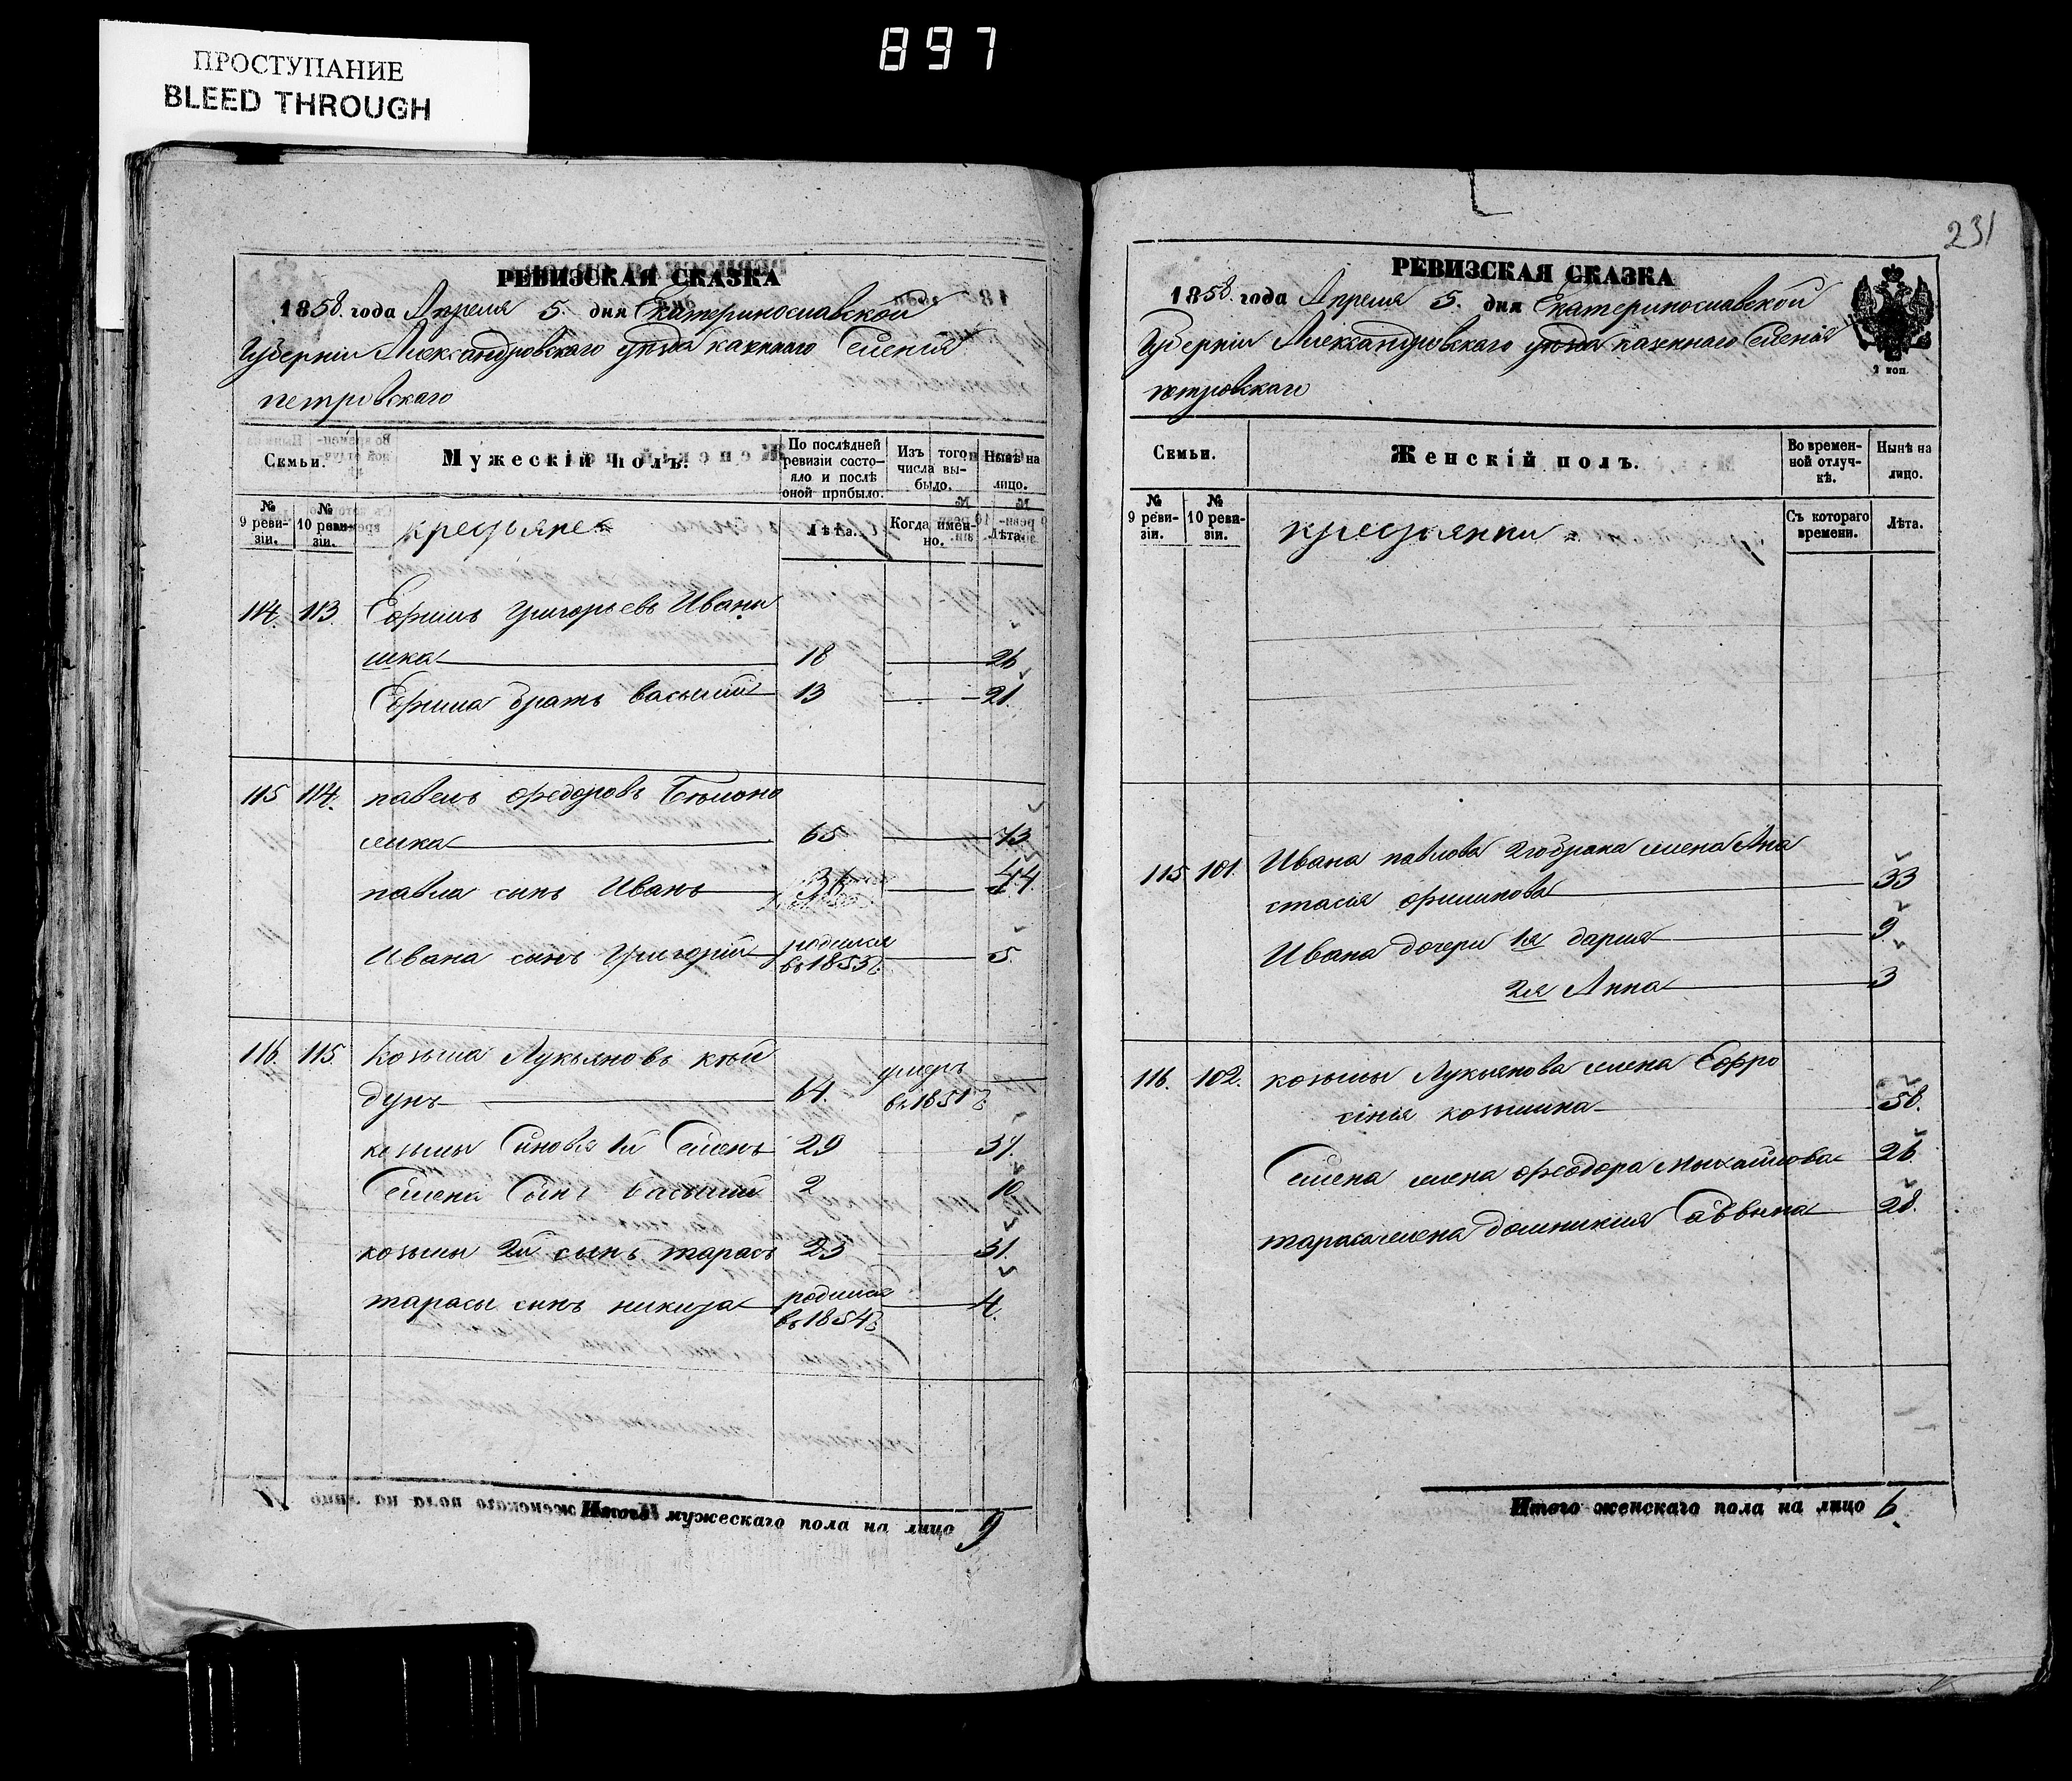 897
ПРОСТУПАНИЕ
BLEED THROUGH
РЕВИЗСКАЯ СКАЗКА
1858. года Апреля 5. дня Екатеринославской
Губерніи Александровскаго уѣзда казеннаго Селенія
петровскаго
Семьи.
Мужескій полъ.
По послѣдней ревизіи состояло и послѣ оной прибыло.
Изъ того числа выбыло.
Нынѣ на лицо.
№ 9 ревизіи.
№ 10 ревизіи.
крестьяне
Лѣта.
Когда именно.
Лѣта.
114. 113. Ефимъ Григорьевъ Ивани
шка 18 26
Ефима братъ василий 13 21.
115 114. павелъ федоровъ
65 73
павла сынъ Иванъ 36 44.
Ивана сынъ Григорий родился в 1853 г. 5.
116. 115. Козьма Лукьяновъ
дунъ 64. умеръ в 1851 г.
козьмы Сыновя 1й Семенъ 29 37.
Семена Сынъ василий 2 10
козьмы 2й сынъ тарасъ 23 31.
тараса сынъ никита родился в 1854 г. 4.
Итого мужескаго пола на лицо 9
231
РЕВИЗСКАЯ СКАЗКА
1858. года Апреля 5. дня Екатеринославской
Губерніи Александровскаго уѣзда казеннаго Селенія
петровскаго
2 коп.
Семьи.
Женскій полъ.
Во временной отлучкѣ.
Нынѣ на лицо.
№ 9 ревизіи.
№ 10 ревизіи.
крестьянки
Съ котораго времени.
Лѣта.
115. 101. Ивана павлова 2го брака жена Ана
стасія филипова 33
Ивана дочери 1я дария 9
2я Анна 3
116. 102. козьмы Лукьянова жена Ефро
сінія козьмина 58.
Семена жена феодора михайлова 26
тараса жена домникия Саввина 28.
Итого женскаго пола на лицо 6.